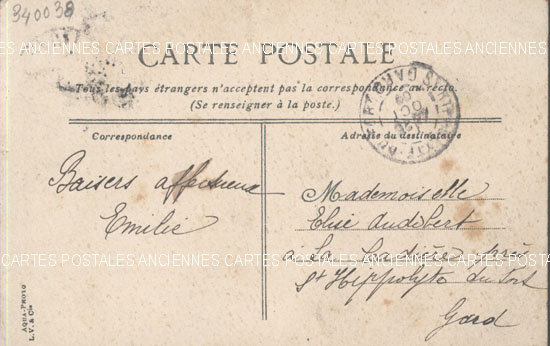 340038
CARTES POSTALES ANCIENNES CARTES POSTALES ANCIENNES CARTES POSTALES ANCIENNES
CARTE POSTALE
Tous les pays étrangers n'acceptent pas la correspondance au recto.
(Se renseigner à la poste.)
Correspondance
Adresse du destinataire
Baisers affectueux
Emilie
Mademoiselle
Elise Audibert
à La près
St Hippolyte du Fort
Gard
CARTES POSTALES ANCIENNES CARTES POSTALES ANCIENNES CARTES POSTALES ANCIENNES
AQUA-PHOTO
L.V. & Cie